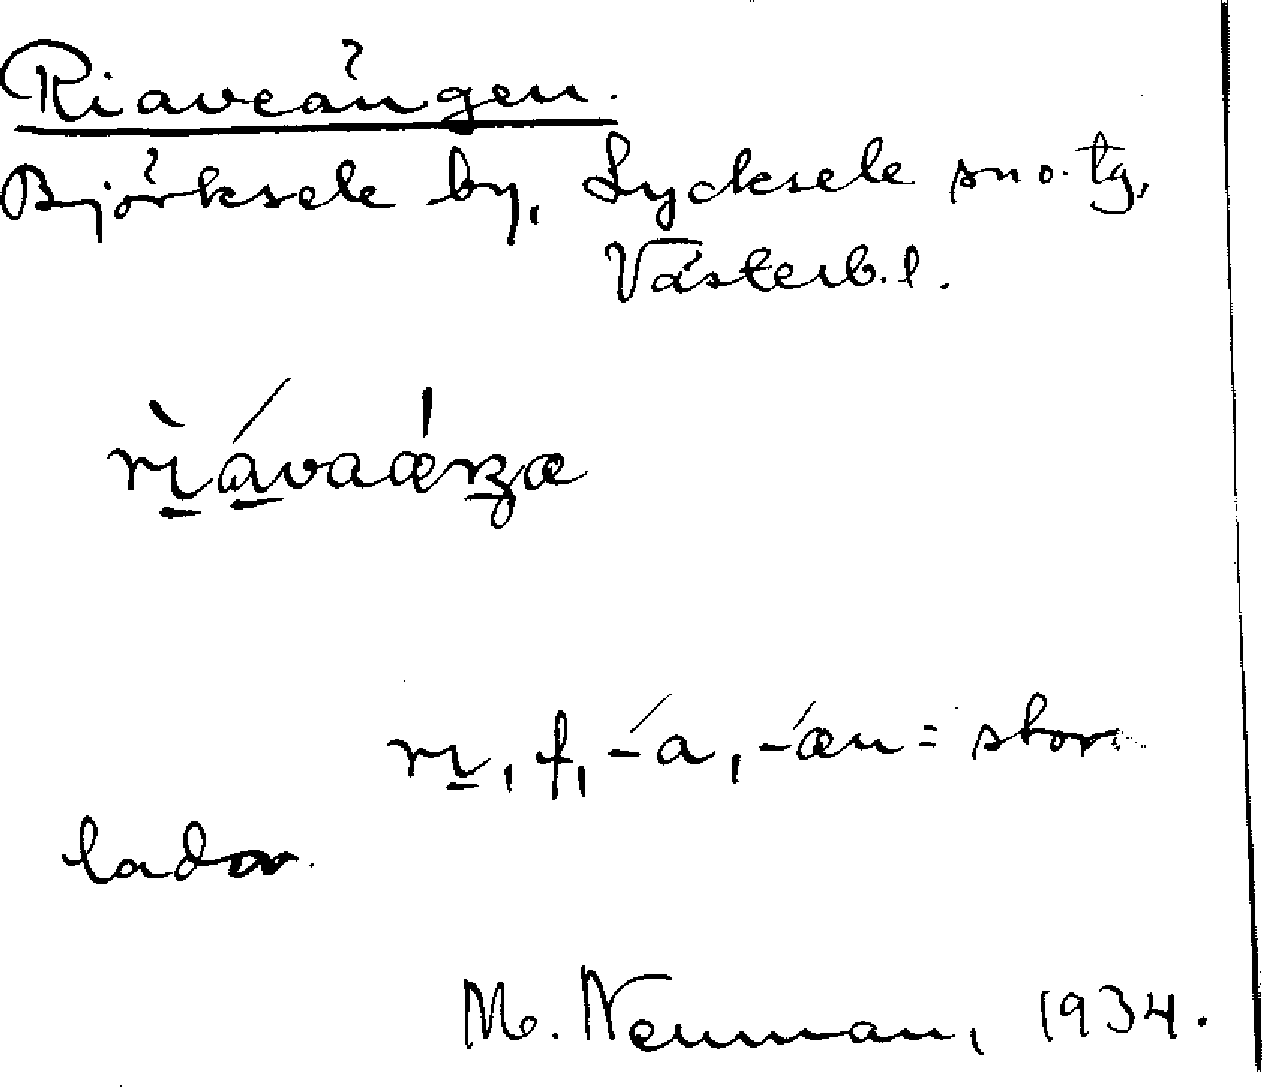 Riaveängen.
Björksele by, Lycksele sn o. tg,
Västerb. l.
rı̀ávaǽŋa
rı, f, -́a, -́æn = stor
lador.
M. Neuman, 1934.